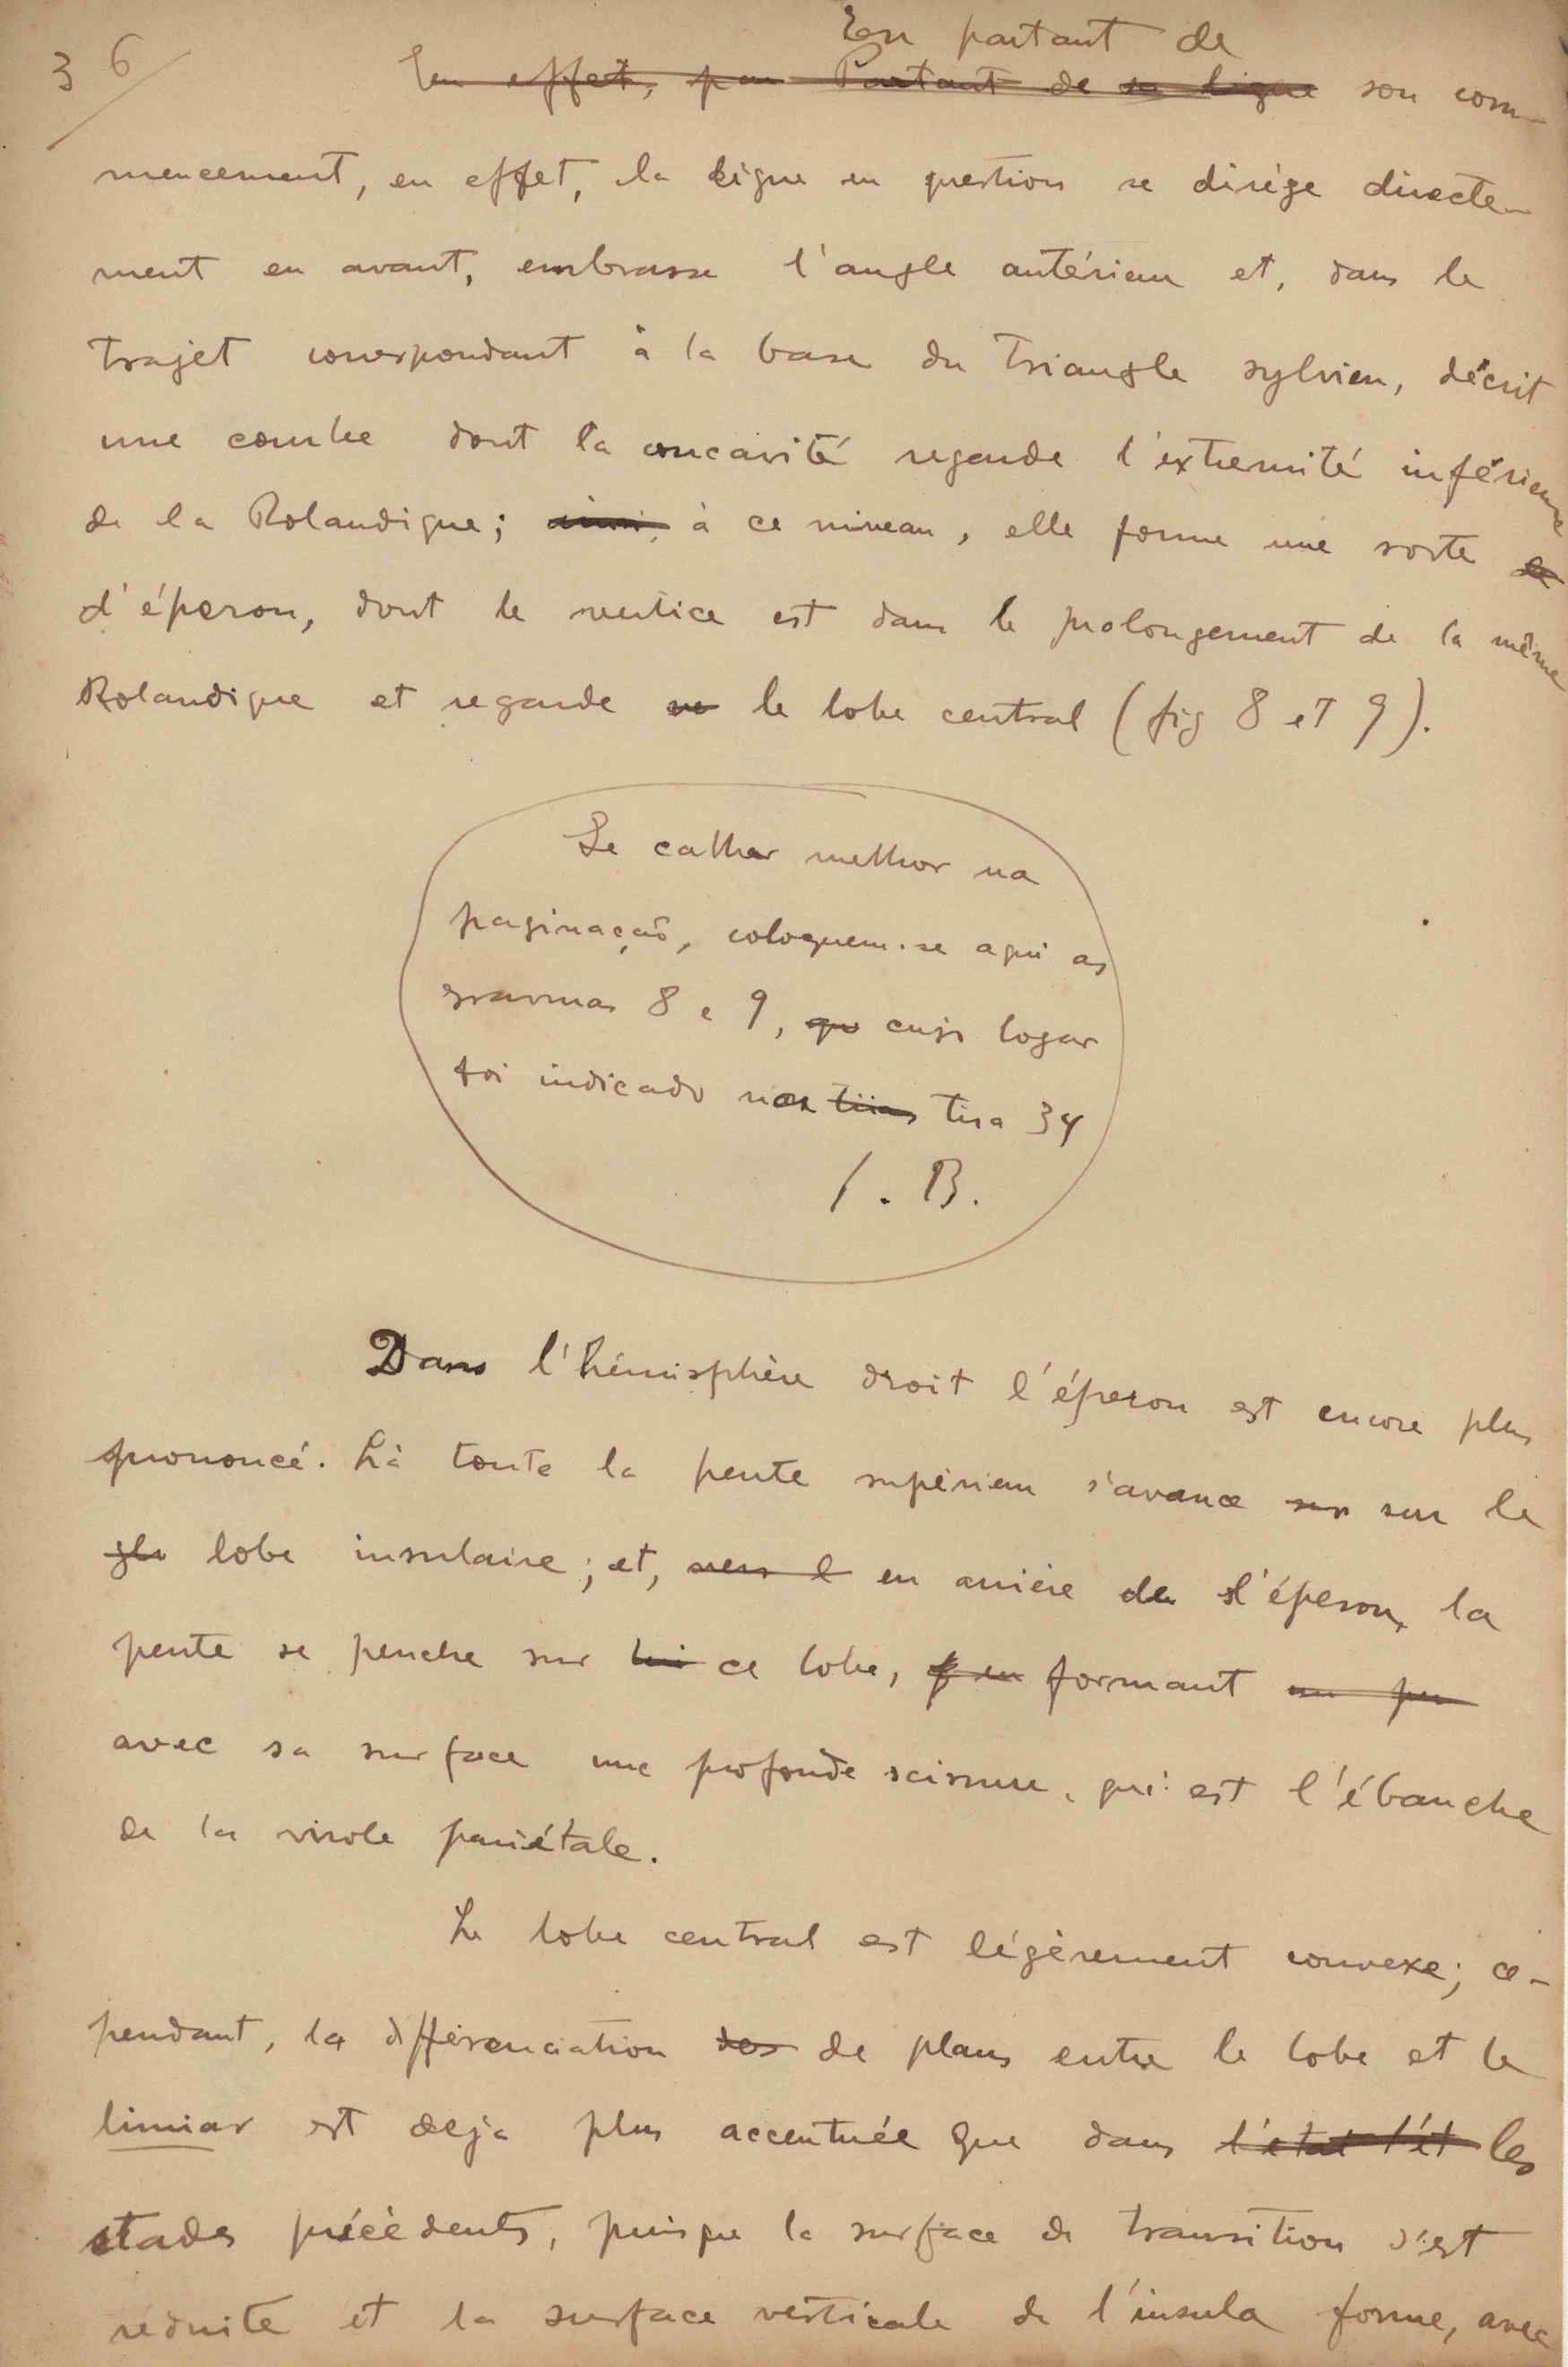 36
En partant de
En effet, par Partant de sa ligne son com-
mencement, en effet, la ligne en question se dirige directe-
ment en avant, embrasse l'angle antérieur et, dans le
trajet correspondant à la base du triangle sylvien, décrit
une courbe dont la concavité regarde l'extremité inférieure
de la Rolandique; ainsi, à ce niveau, elle forme une sorte de
d'éperon, dont le vertice est dans le prolongement de la même
Rolandique et regarde ve le lobe central (fig 8 et 9).
Se calhar melhor na
paginação, coloquem-se aqui as
gravuras 8 e 9, qu cujo logar
foi indicado na tiras tira 34
. B.
Dans l'hémisphère droit l'éperon est encore plus
prononcé. Là toute la pente supérieur s'avance sur sur le
glo lobe insulaire; et, vers l en arrière de l'éperon, la
pente se penche sur lui ce lobe, f en formant un peu
avec sa surface une profonde scissure, qui est l'ébauche
de la virole pariétale.
Le lobe central est légèrement convexe; ce-
pendant, la différenciation des de plans entre le lobe et le
limiar est deja plus accentuée que dans l'état l'ét les
stades précédents, puisque la surface de transition s'est
réduite et la surface verticale de l'insula forme, avec